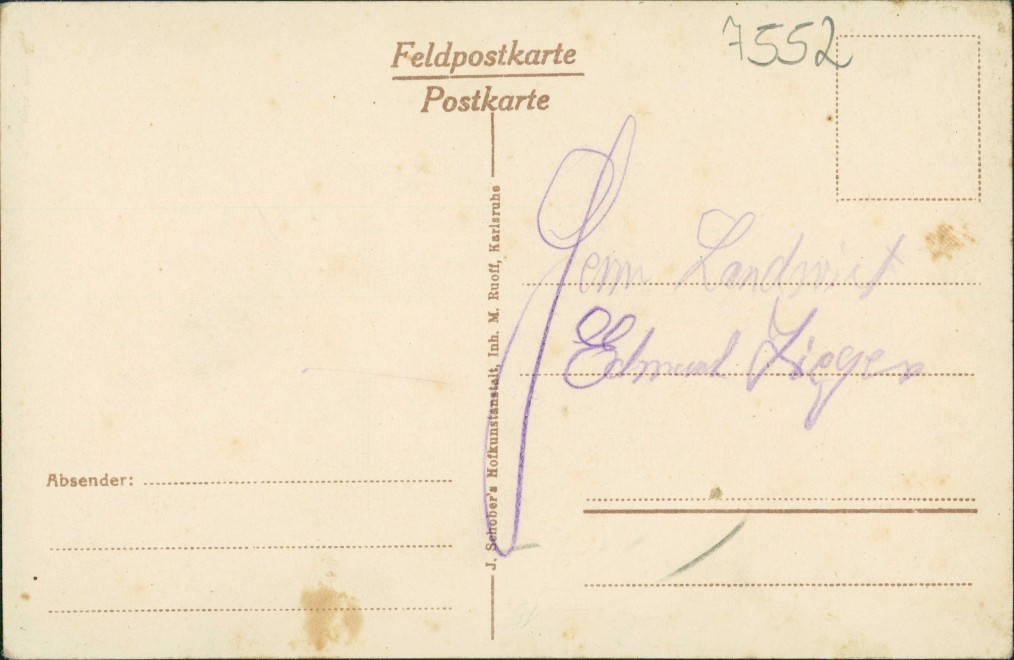 7552
Feldpostkarte
Postkarte
J. Schober's Hofkunstanstalt, Inh. M. Ruoff, Karlsruhe
Herrn Landwirt
Edmund
Absender: